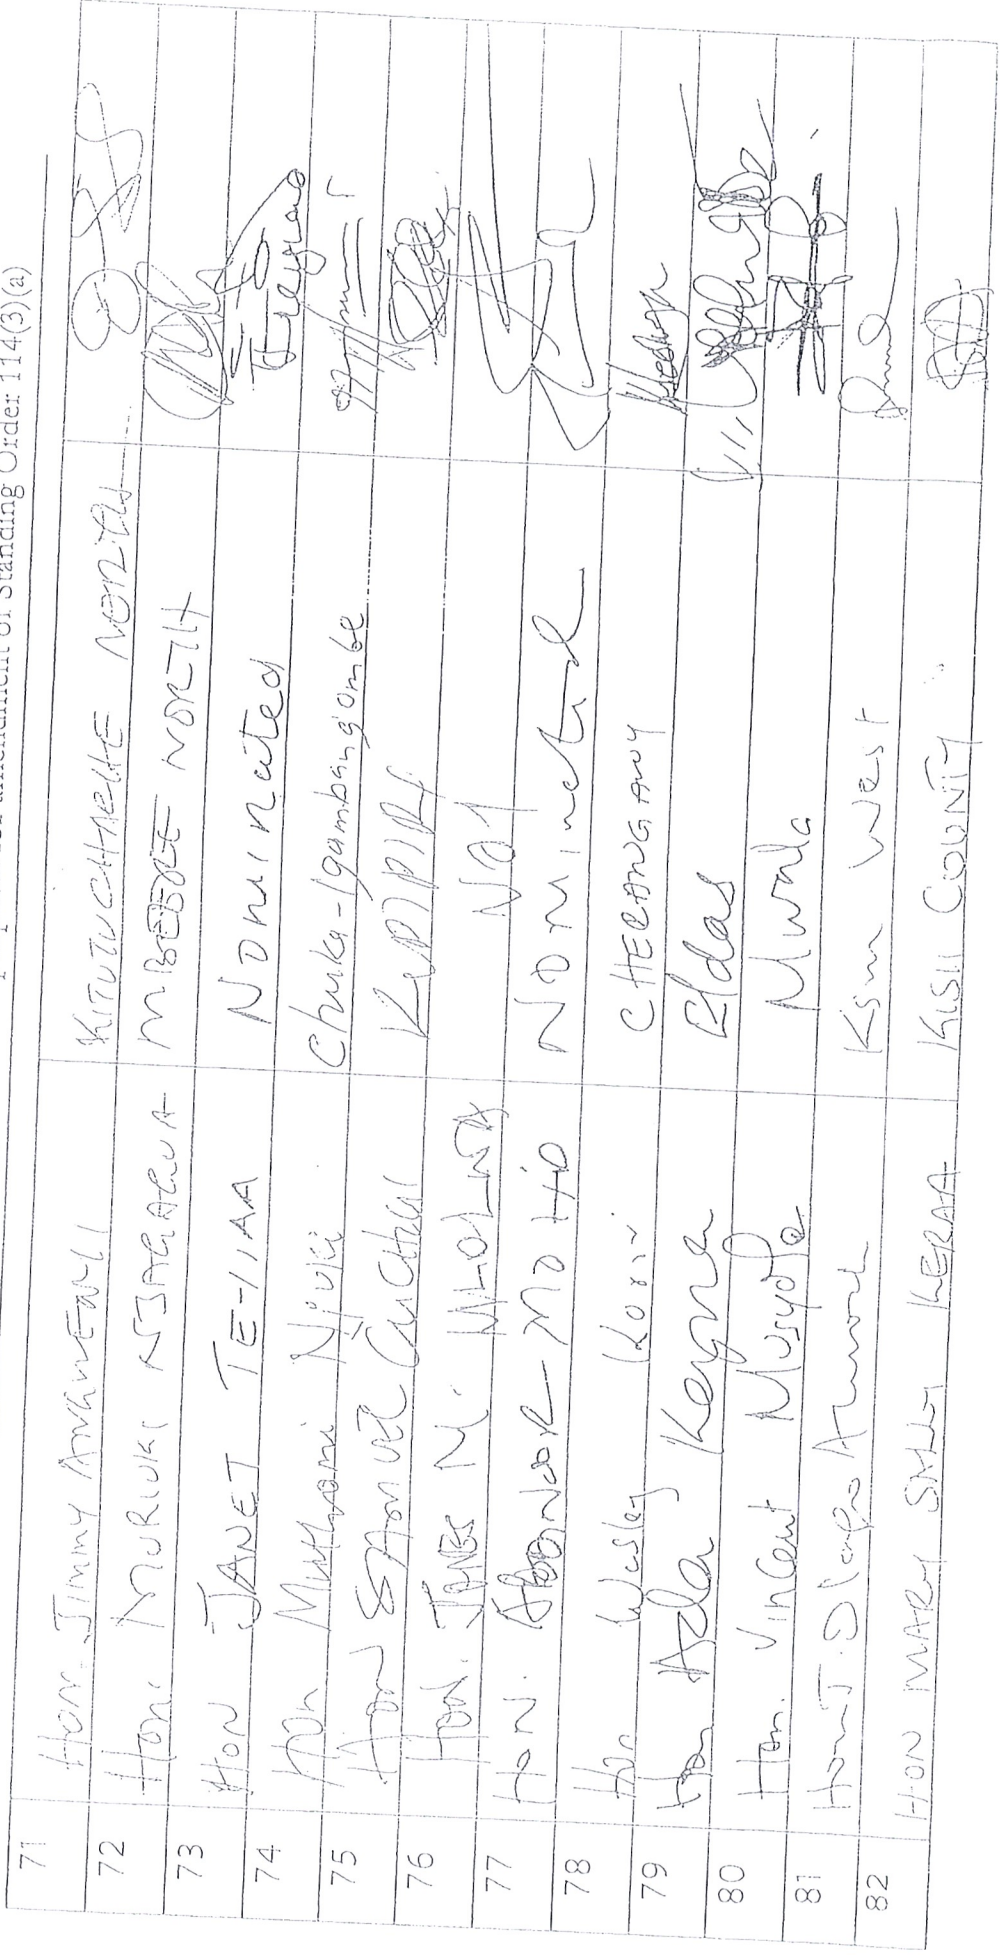 amendment of Standing Order 114(3)(a)
71 Hon. Jimmy KITUTU CHACHE NORTH
72 Hon. MURIUKI NJAGAGUA MBEERE NORTH
73 HON JANET TEYIAA Nominated
74 Hon Muthomi Njuki Chuka-Igambang'ombe
75 Hon SAMUEL
76 Hon. JAMES M.
77 HON. NOMINATED
78 Hon Wesley Korir CHERANGANY
79 Hon Adan Keynan Eldas
80 Hon. Vincent Musyoka Mwala
81 Hon J. Olago Aluoch Ksm West
82 HON MARY SALLY KERAA KISII COUNTY